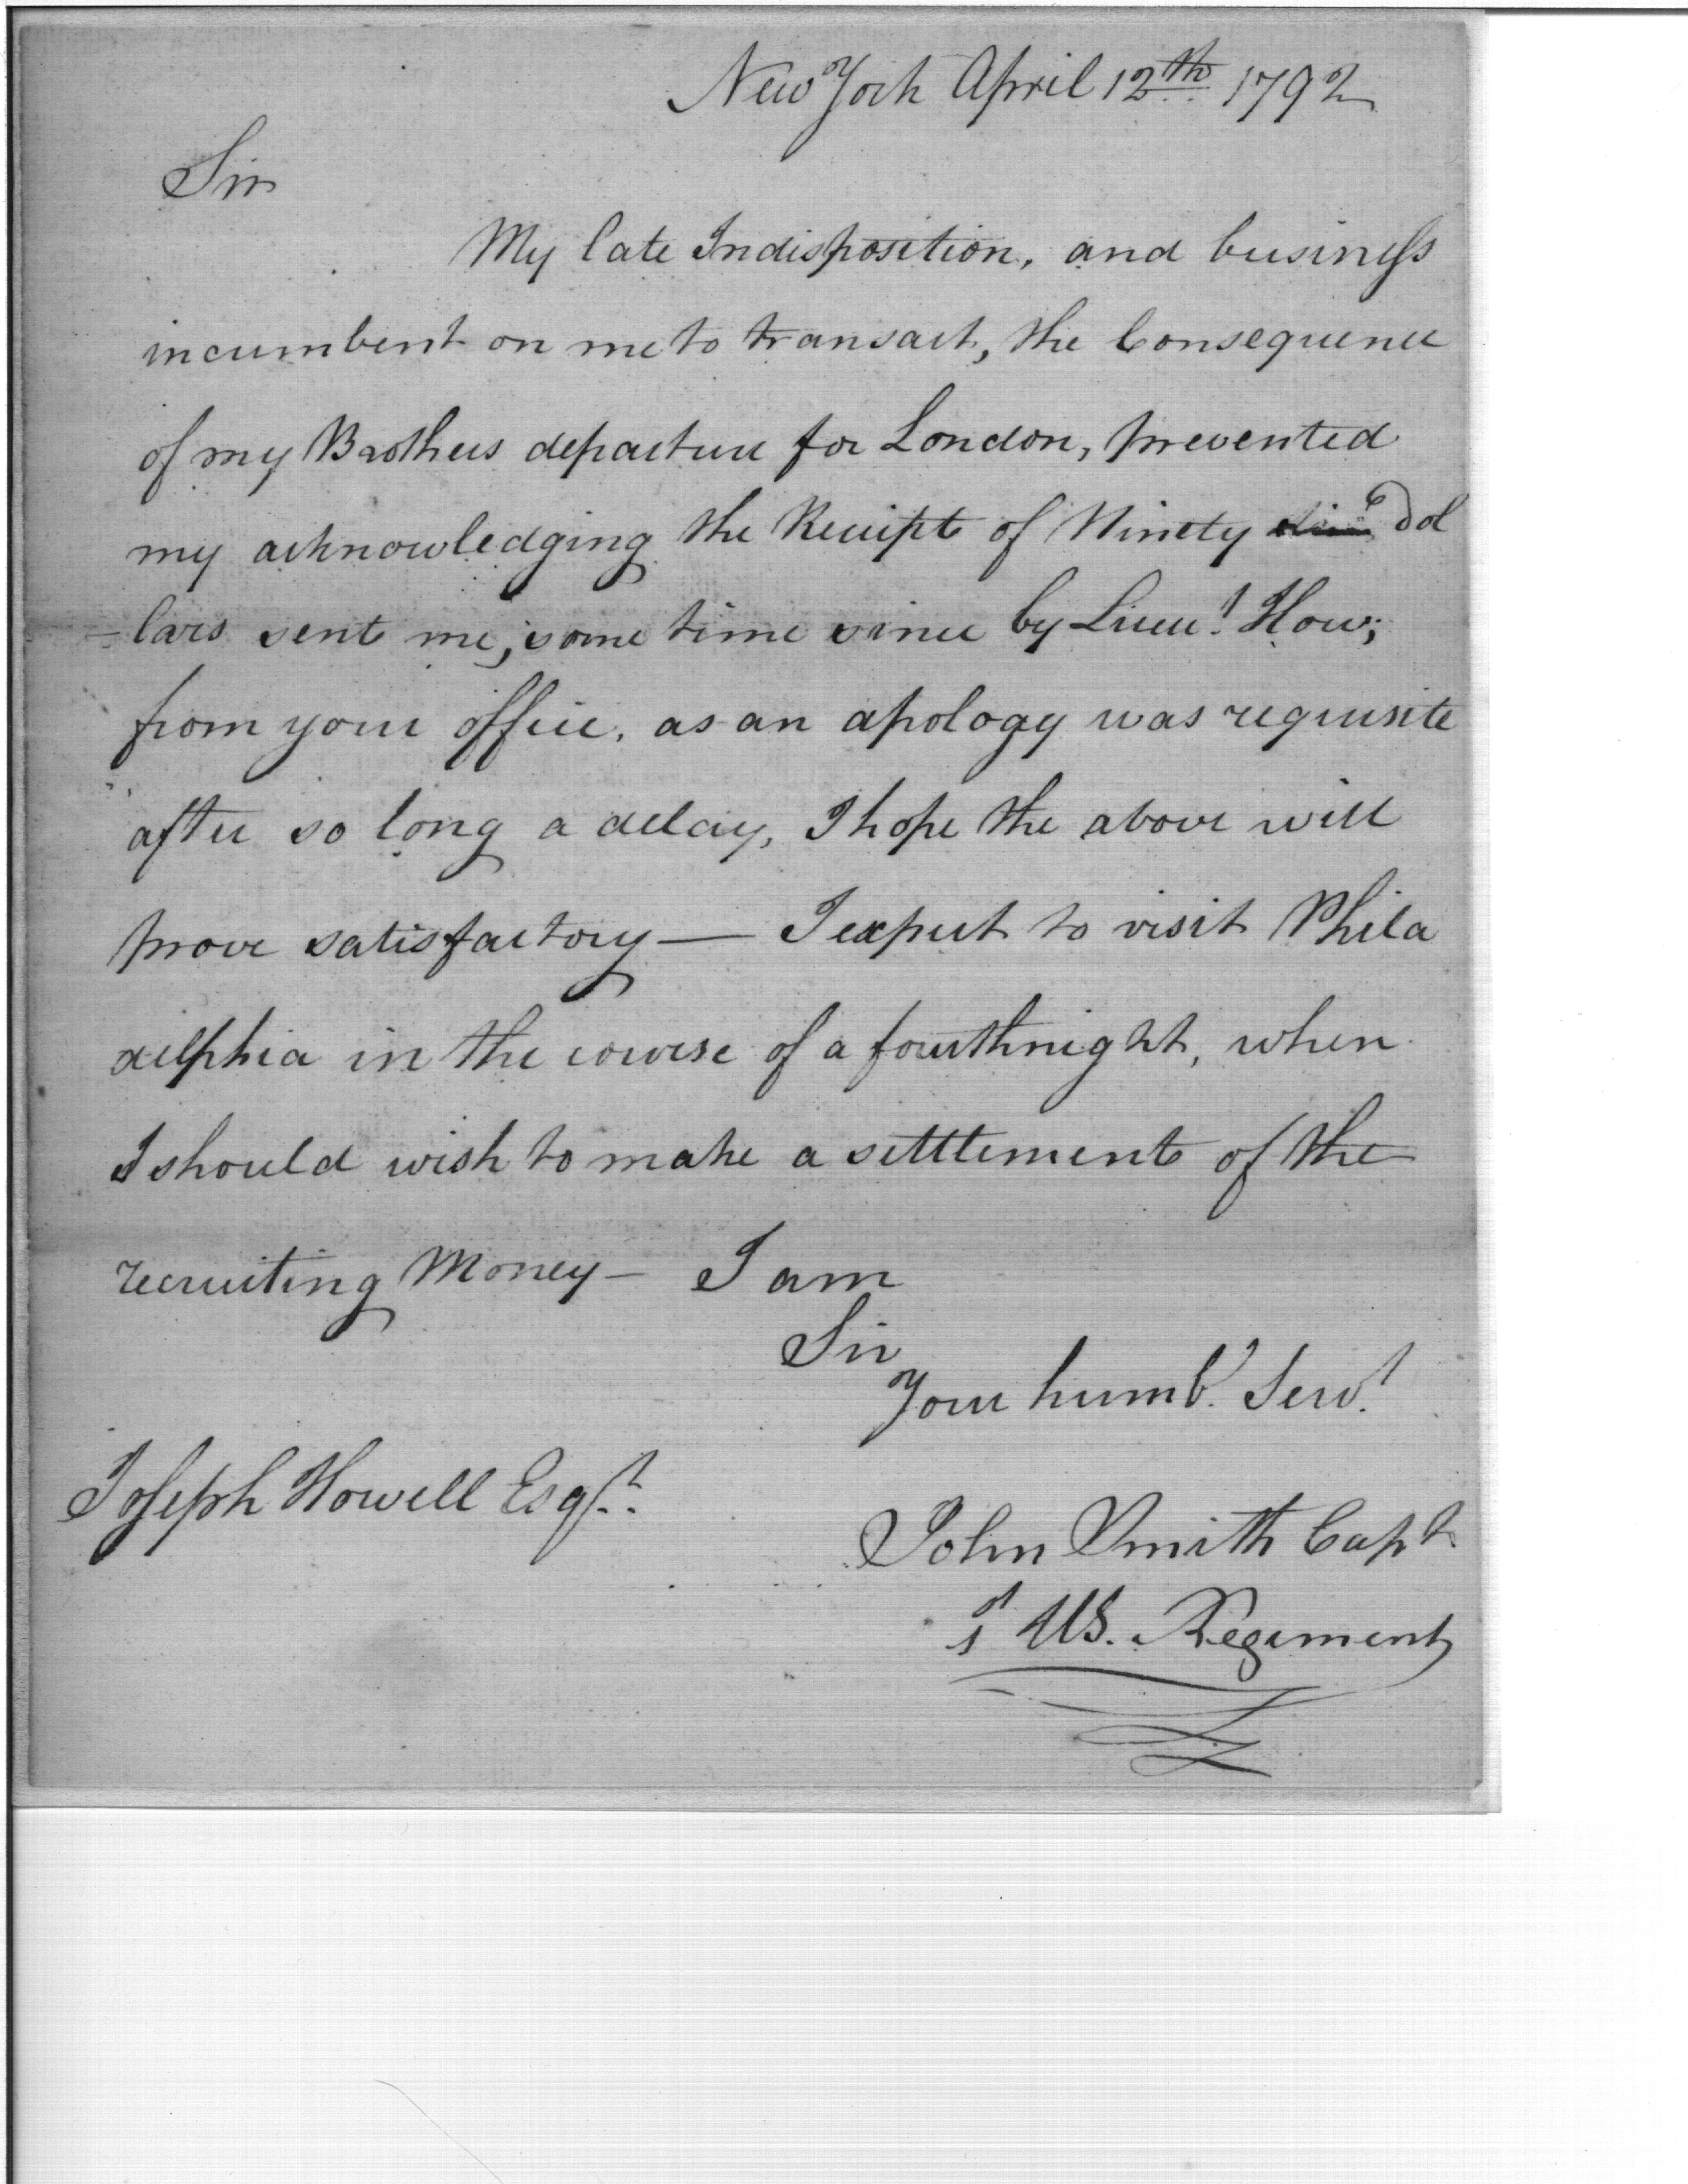 New York April 12th 1792
Sir
My late Indisposition, and business
incumbent on me to transact, the Consequence
of my Brothers departure for London, prevented
my acknowledging the Receipt of Ninety 6 dol
lars sent me, some time since by Lieut. How;
from your office, as an apology was requisite
after so long a delay, I hope the above will
prove satisfactory — I expect to visit Phila
delphia in the course of a fourthnight, when
I should wish to make a settlement of the
recruiting Money – I am
Sir
Your humbl. Servt.
Joseph Howell Esqr.
John Smith Capt
1st US. Regiment